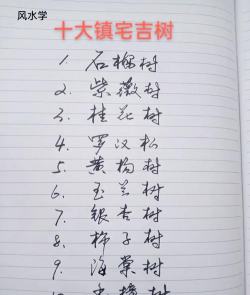 风水学
十大镇宅吉树
1. 石榴树
2. 紫薇树
3. 桂花树
4. 罗汉松
5. 黄杨树
6. 玉兰树
7. 银杏树
8. 柿子树
9. 海棠树